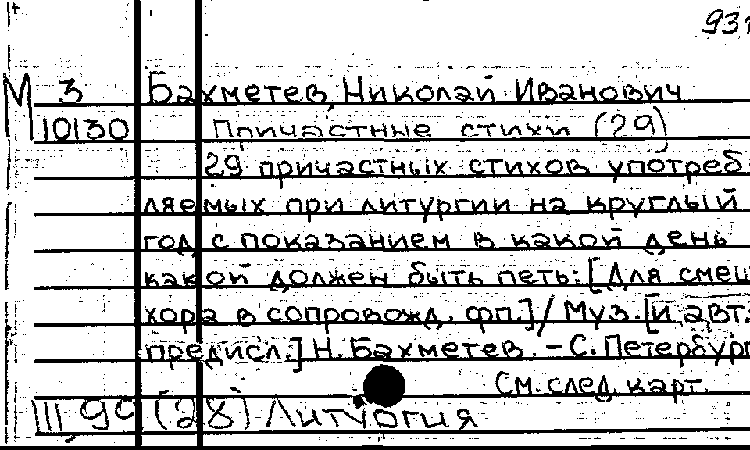 931
М 3 Бахметев, Николай Иванович
10130 Причастные стихи (29)
29 причастных стихов употреб
ляемых при литургии на круглый
год, с показанием в какой день
какой должен быть петь: [Для смеш
хора в сопровожд. фп.] / Муз. [и авт.
предисл.] Н. Бахметев. – С. Петербург
См. след. карт.
III, 99 (28) Литургия